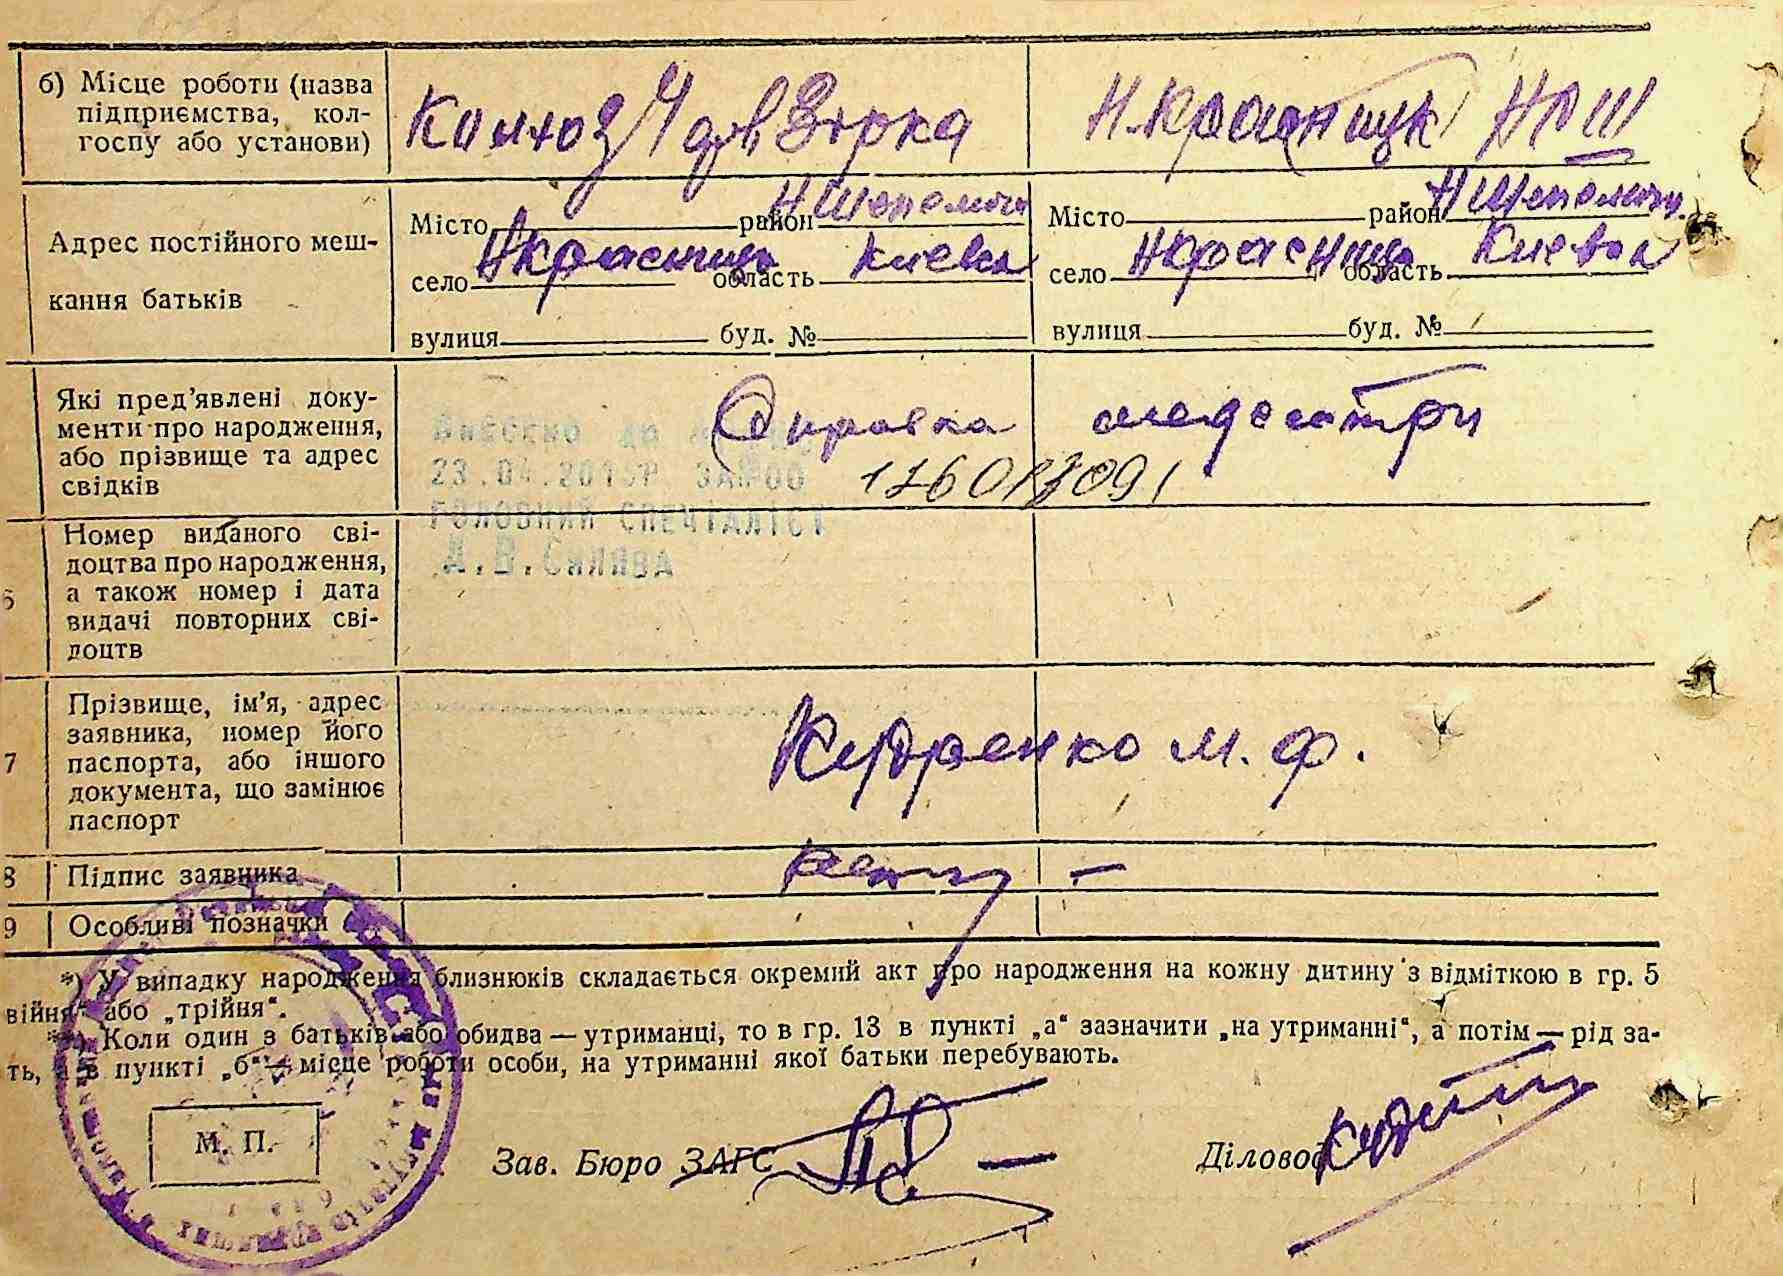 б) Місце роботи (назва
підприємства, кол-
госпу або установи)
Колхоз Черв Зірка
Н.Красн НСШ
Адрес постійного меш-
кання батьків
Місто район НШепелич
село НКрасниця область Киевск
вулиця буд. №
Місто район НШепелич.
село НКрасниця область Киевск
вулиця буд. №
Які пред'явлені доку-
менти про народження,
або прізвище та адрес
свідків
Справка медсестри
Внесено до
23.04.201 р ЗА №00
ГОЛОВНИЙ СПЕЦІАЛІСТ
Д.В.
6
Номер виданого сві-
доцтва про народження,
а також номер і дата
видачі повторних сві-
доцтв
7
Прізвище, ім'я, адрес
заявника, номер його
паспорта, або іншого
документа, що замінює
паспорт
М. Ф.
8 Підпис заявника
9 Особливі позначки
*) У випадку народження близнюків складається окремий акт про народження на кожну дитину з відміткою в гр. 5
війня“ або „трійня“.
**) Коли один з батьків або обидва — утриманці, то в гр. 13 в пункті „а“ зазначити „на утриманні“, а потім — рід за-
ть, а в пункті „б“ — місце роботи особи, на утриманні якої батьки перебувають.
М. П.
Зав. Бюро ЗАГС
Діловод